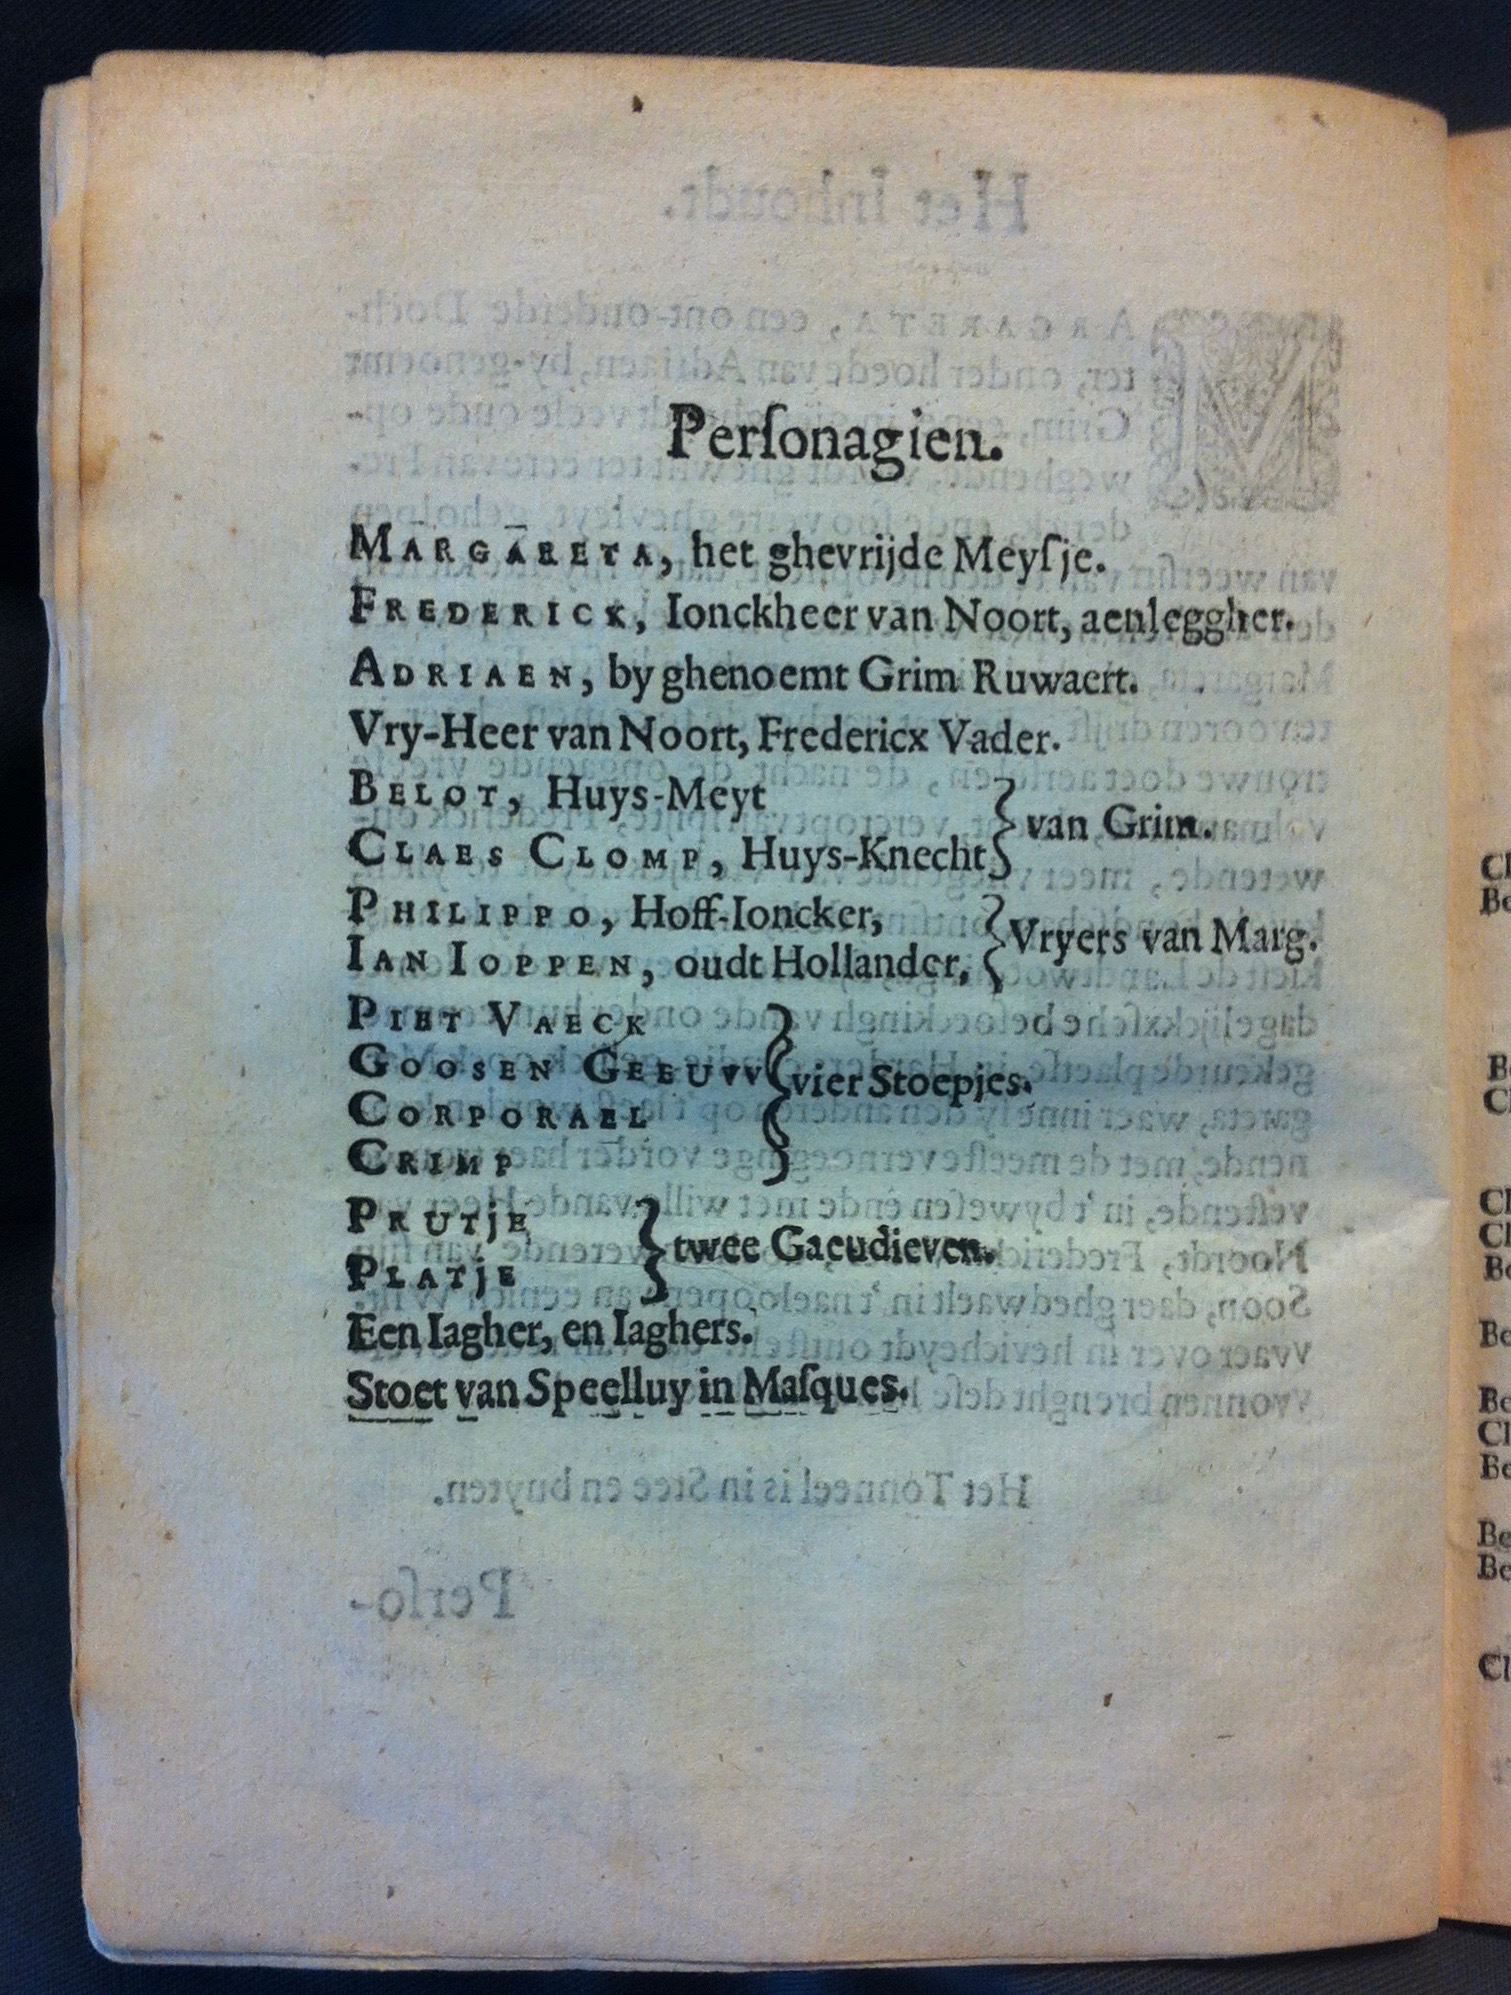 Perſonagien.
MARGARETA, het ghevrijde Meyſje.
FREDERICK, Ionckheer van Noort, aenleggher.
ADRIAEN, by ghenoemt Grim Ruwaert.
Vry-Heer van Noort, Fredericx Vader.
BELOT, Huys-Meyt
CLAES CLOMP, Huys-Knecht } van Grim.
PHILIPPO, Hoff-Ioncker,
IAN IOPPEN, oudt Hollander, } Vryers van Marg.
PIET VAECK
GOOSEN GEEUVV } vier Stoepjes.
CORPORAEL
CRIMP
PRUTjE
PLATjE } twee Gaeudieven.
Een Iagher, en Iaghers.
Stoet van Speelluy in Maſques.